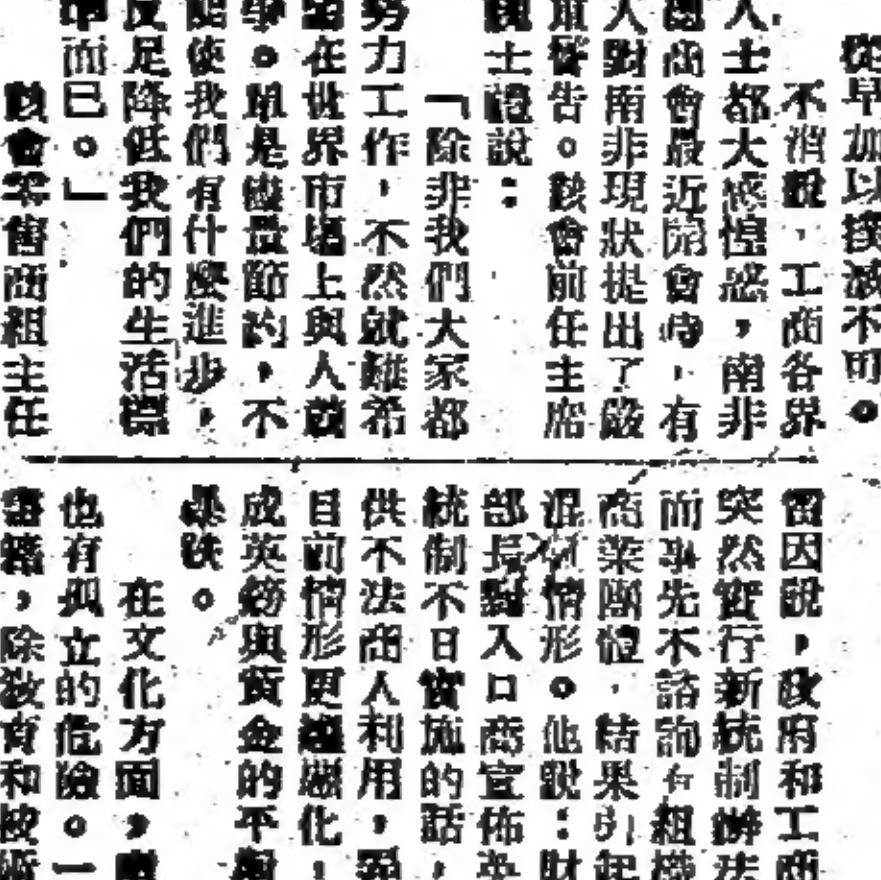 從早加以撲滅不可。
不消說，工商各界
人士都大感惶惑，南非
商會最近開會時，有
人對南非現狀提出了嚴
警告。該會前任主席
士說：
「除非我們大家都
努力工作，不然就難希
在世界市場上與人競
爭。單是儘量節約，不
能使我們有什麼進步，
反足降低我們的生活標
而已。」
該會零售商組主任
雷因說，政府和工商
突然實行新統制辦法
而事先不諮詢有組織
商業團體，結果引起
混情形。他說：財
部長對入口商宣佈英
統制不日實施的話，
供不法商人利用，
目前情形更惡化！
成英鎊與黃金的平
暴跌。
在文化方面，
也有孤立的危險。一
除教育和技術